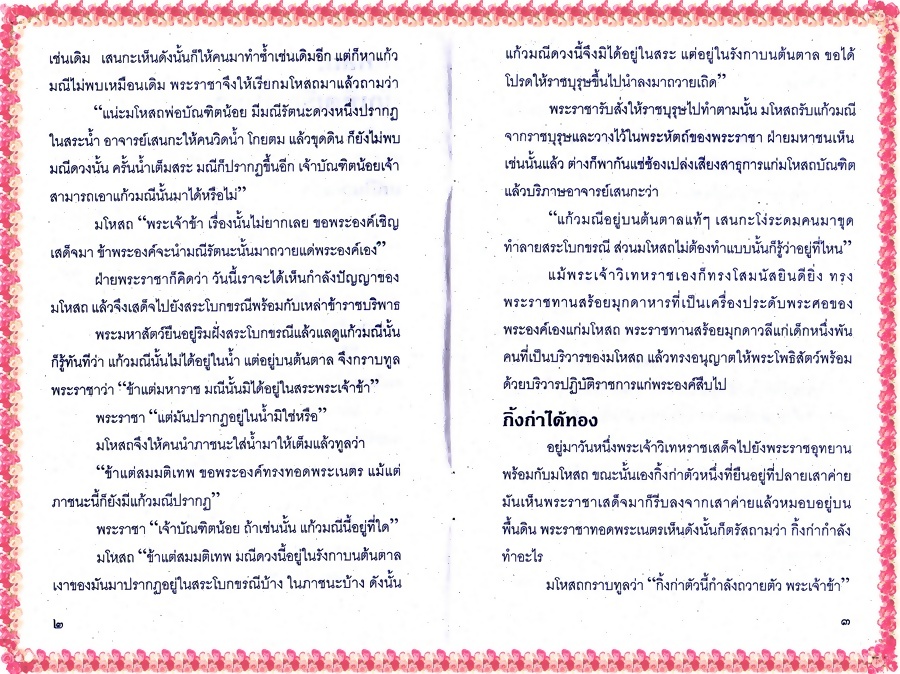 เช่นเดิม เสนกะเห็นดังนั้นก็ให้คนมาทำซ้ำเช่นเดิมอีก แต่ก็หาแก้ว
มณีไม่พบเหมือนเดิม พระราชาจึงให้เรียกมโหสถมาแล้วถามว่า
“แน่ะมโหสถพ่อบัณฑิตน้อย มีมณีรัตนะดวงหนึ่งปรากฏ
ในสระน้ำ อาจารย์เสนกะให้คนวิดน้ำ โกยตม แล้วขุดดิน ก็ยังไม่พบ
มณีดวงนั้น ครั้นน้ำเต็มสระ มณีก็ปรากฏขึ้นอีก เจ้าบัณฑิตน้อยเจ้า
สามารถเอาแก้วมณีนั้นมาได้หรือไม่”
มโหสถ “พระเจ้าข้า เรื่องนั้นไม่ยากเลย ขอพระองค์เชิญ
เสด็จมา ข้าพระองค์จะนำมณีรัตนะนั้นมาถวายแด่พระองค์เอง”
ฝ่ายพระราชาก็คิดว่า วันนี้เราจะได้เห็นกำลังปัญญาของ
มโหสถ แล้วจึงเสด็จไปยังสระโบกขรณีพร้อมกับเหล่าข้าราชบริพาธ
พระมหาสัตว์ยืนอยู่ริมฝั่งสระโบกขรณีแล้วแลดูแก้วมณีนั้น
ก็รู้ทันทีว่า แก้วมณีนั้นไม่ได้อยู่ในน้ำ แต่อยู่บนต้นตาล จึงกราบทูล
พระราชาว่า “ข้าแต่มหาราช มณีนั้นมิได้อยู่ในสระพระเจ้าข้า”
พระราชา “แต่มันปรากฏอยู่ในน้ำมิใช่หรือ”
มโหสถจึงให้คนนำภาชนะใส่น้ำมาให้เต็มแล้วทูลว่า
“ข้าแต่สมมติเทพ ขอพระองค์ทรงทอดพระเนตร แม้แต่
ภาชนะนี้ก็ยังมีแก้วมณีปรากฏ”
พระราชา “เจ้าบัณฑิตน้อย ถ้าเช่นนั้น แก้วมณีนี้อยู่ที่ใด”
มโหสถ “ข้าแต่สมมติเทพ มณีดวงนี้อยู่ในรังกาบนต้นตาล
เงาของมันมาปรากฏอยู่ในสระโบกขรณีบ้าง ในภาชนะบ้าง ดังนั้น
๒
แก้วมณีดวงนี้จึงมิได้อยู่ในสระ แต่อยู่ในรังกาบนต้นตาล ขอได้
โปรดให้ราชบุรุษขึ้นไปนำลงมาถวายเถิด”
พระราชารับสั่งให้ราชบุรุษไปทำตามนั้น มโหสถรับแก้วมณี
จากราชบุรุษและวางไว้ในพระหัตถ์ของพระราชา ฝ่ายมหาชนเห็น
เช่นนั้นแล้ว ต่างก็พากันแซ่ซ้องเปล่งเสียงสาธุการแก่มโหสถบัณฑิต
แล้วบริภาษอาจารย์เสนกะว่า
“แก้วมณีอยู่บนต้นตาลแท้ๆ เสนกะโง่ระดมคนมาขุด
ทำลายสระโบกขรณี ส่วนมโหสถไม่ต้องทำแบบนั้นก็รู้ว่าอยู่ที่ไหน”
แม้พระเจ้าวิเทหราชเองก็ทรงโสมนัสยินดียิ่ง ทรง
พระราชทานสร้อยมุกดาหารที่เป็นเครื่องประดับพระศอของ
พระองค์เองแก่มโหสถ พระราชทานสร้อยมุกดาวลีแก่เด็กหนึ่งพัน
คนที่เป็นบริวารของมโหสถ แล้วทรงอนุญาตให้พระโพธิสัตว์พร้อม
ด้วยบริวารปฏิบัติราชการแก่พระองค์สืบไป
กิ้งก่าได้ทอง
อยู่มาวันหนึ่งพระเจ้าวิเทหราชเสด็จไปยังพระราชอุทยาน
พร้อมกับมโหสถ ขณะนั้นเองกิ้งก่าตัวหนึ่งที่ยืนอยู่ที่ปลายเสาค่าย
มันเห็นพระราชาเสด็จมาก็รีบลงจากเสาค่ายแล้วหมอบอยู่บน
พื้นดิน พระราชาทอดพระเนตรเห็นดังนั้นก็ตรัสถามว่า กิ้งก่ากำลัง
ทำอะไร
มโหสถกราบทูลว่า “กิ้งก่าตัวนี้กำลังถวายตัว พระเจ้าข้า”
๓